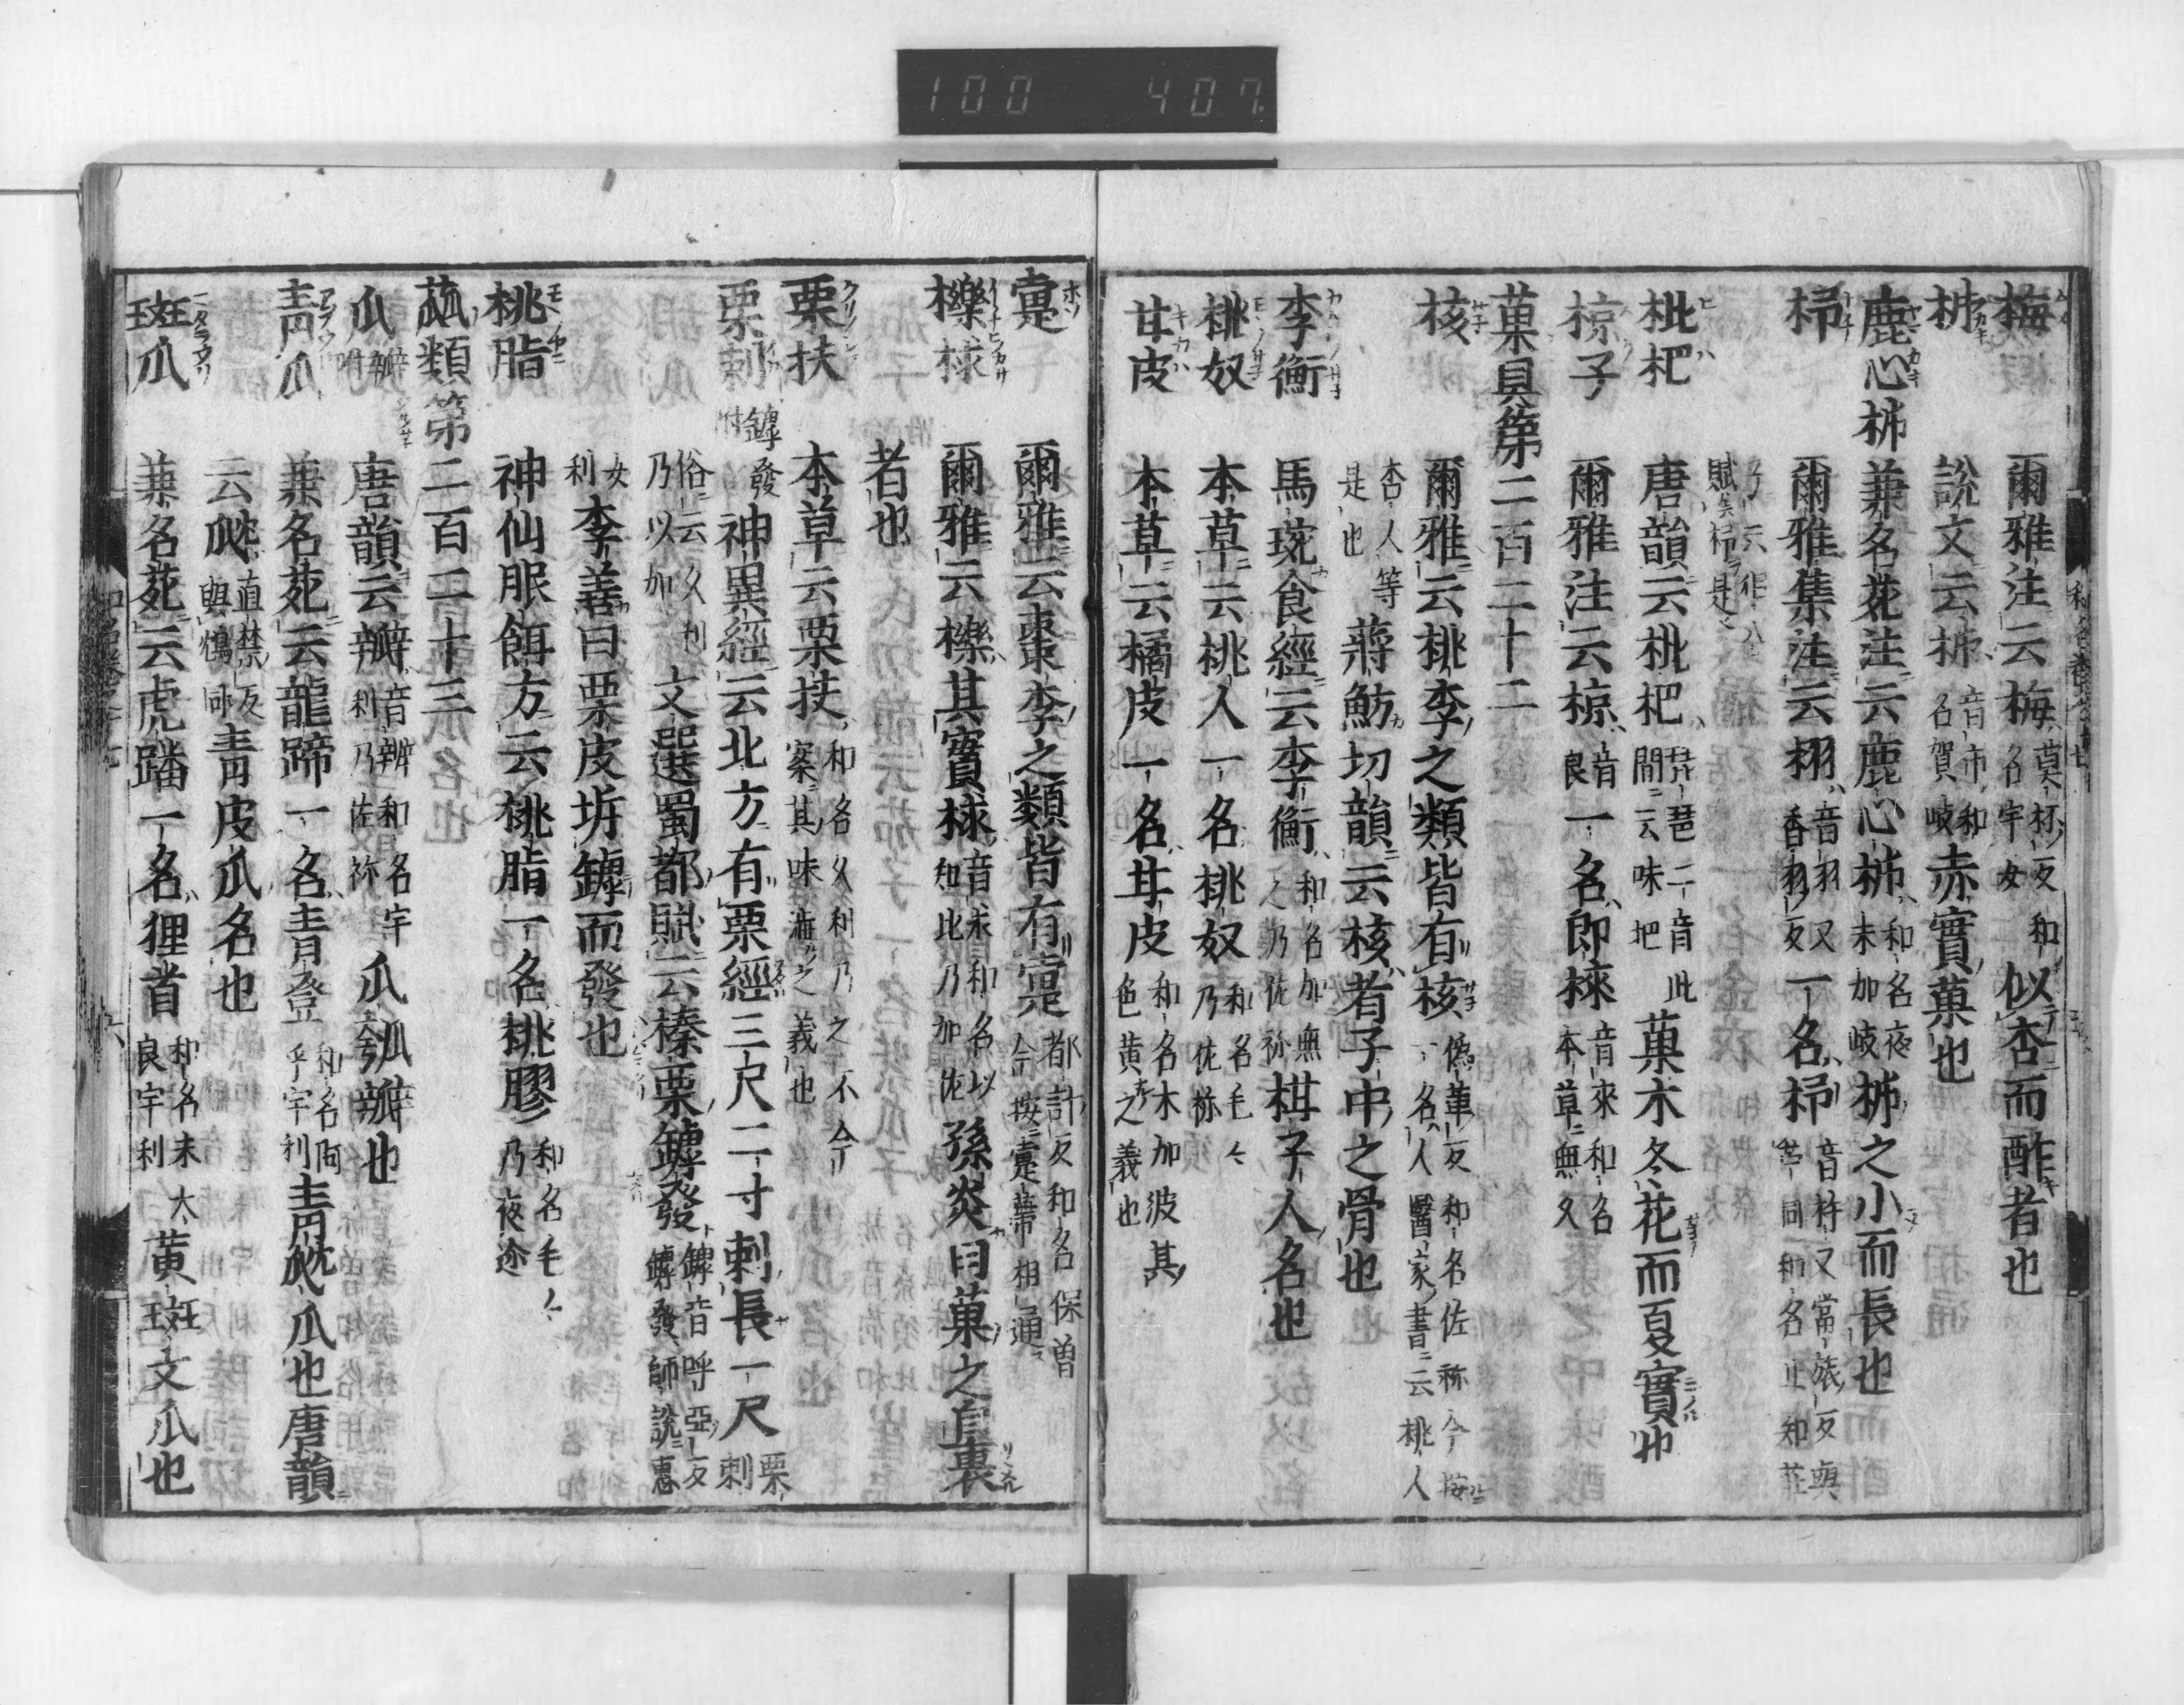 100 407
梅 爾雅注云梅 莫杯反和名宇女 似杏而酢者也
柹 説文云柹 音市和名賀岐 赤實菓也
鹿心柹 兼名苑注云鹿心柹 和名夜末加岐 柹之小而長也
杼 爾雅集注云栩 音羽又香羽反 一名杼 音杵又當旅反與苧同和名止知
枇杷 唐韻云枇杷 琵琶二音此間云味把 菓木冬花而夏實也
椋子 爾雅注云椋 音良 一名即棶 音來和名本草無久
菓具第二百二十二
核 爾雅云桃李之類皆有核 和名佐祢今按醫家書云桃人
杏人等是也 蔣魴切韻云核者子中之骨也
李衡 馬琬食經云李衡 和名加無之乃佐祢 棋子人名也
桃奴 本草云桃人一名桃奴 和名毛々乃佐祢
甘皮 本草云橘皮一名甘皮 和名木加波其色黄之義也
寁 爾雅云棗李之類皆有寁 都計反和名保曽今按寁蔕相通
櫟梂 爾雅云櫟其實梂 音求和名以知比乃加佐 孫炎曰菓之自裹
者也
栗扶 本草云栗扶 和名久利乃之不今案其味澁之義也
栗刺 罅發附 神異經云北方有栗經三尺二寸刺長一尺 栗刺
俗云久利乃以加 文選蜀都賦云榛栗罅發 罅音呼亞反罅發師説惠
女利 李善曰栗皮坼罅而發也
桃脂 神仙服餌方云桃脂一名桃膠 和名毛々乃夜迩
蓏類第二百二十三
瓜 瓣附 唐韻云瓣 音辦和名宇利乃佐祢 瓜瓠瓣也
青瓜 兼名苑云龍蹄一名青登 和名阿乎宇利 青㼉瓜也唐韻
云㼉 直禁反與鴆同 青皮瓜名也
斑瓜 兼名苑云虎蹯一名狸首 和名末太良宇利 黄斑文瓜也